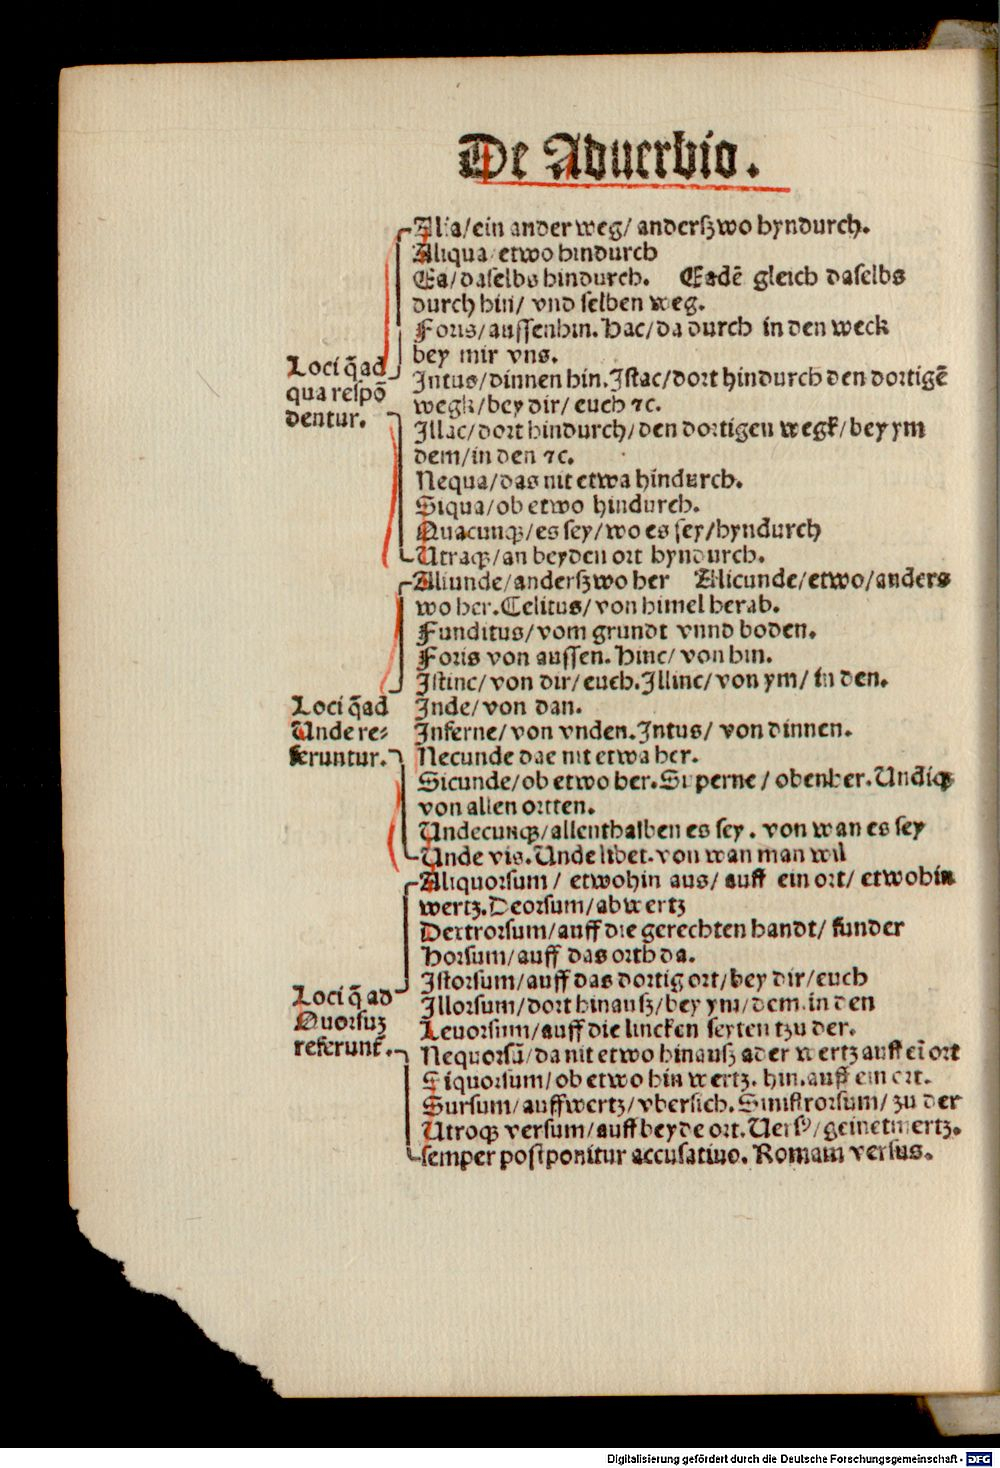 De Aduerbio.
Loci q̃ ad
qua respõ
dentur.
Alia/ein ander weg/ anderßwo hyndurch.
Aliqua/etwo hindurch
Ea/daselbs hindurch. Eadẽ gleich daselbs
durch hin/ vnd selben weg.
Foris/aussenhin. Hac/da durch in den weck
bey mir vns.
Intus/dinnen hin. Istac/dort hindurch den dortigẽ
wegk/bey dir/ euch ⁊c.
Illac/dort hindurch/den dortigen wegk/bey ym
dem/in den ⁊c.
Nequa/das nit etwa hindurch.
Siqua/ob etwo hindurch.
Quacunqꝫ/es sey/wo es sey/hyndurch
Utraqꝫ/an beyden ort hyndurch.
Loci q̃ ad
Unde re⸗
feruntur.
Aliunde/anderßwo her Alicunde/etwo/anders
wo her. Celitus/von himel herab.
Funditus/vom grundt vnnd boden.
Foris von aussen. Hinc/ von hin.
Istinc/von dir/euch. Illinc/von ym/ in den.
Inde/von dan.
Inferne/von vnden. Intus/ von dinnen.
Necunde dae nit etwa her.
Sicunde/ob etwo her. Superne/ obenher. Undiqꝫ
von allen ortten.
Undecunqꝫ/allenthalben es sey. von wan es sey
Unde vis. Unde libet. von wan man wil
Loci q̃ ad
Quorsuꝫ
referunt̃.
Aliquorsum/ etwohin aus/ auff ein ort/ etwohin
wertz. Deorsum/abwertz
Dextrorsum/auff die gerechten handt/ sunder
Horsum/auff das orth da.
Istorsum/auff das dortig ort/bey dir/euch
Illorsum/dort hinauß/bey ym/dem.in den
Leuorsum/auff die lincken seyten tzu der.
Nequorsũ/da nit etwo hinauß ader wertz auff eĩ ort
Siquorsum/ob etwo hin wertz. hin. auff ein ort.
Sursum/auffwertz/vbersich. Sinistrorsum/ zu der
Utroqꝫ versum/auff beyde ort. Uersꝰ/geinetwertz.
semper postponitur accusatiuo. Romam versus.
Digitalisierung gefördert durch die Deutsche Forschungsgemeinschaft - DFG